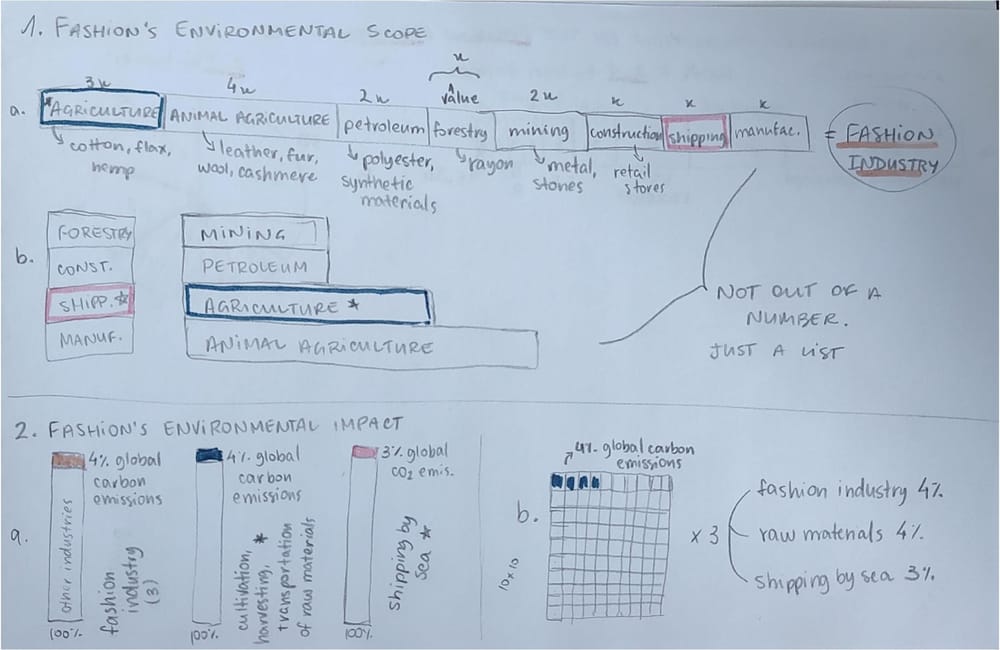 1. FASHION'S ENVIRONMENTAL SCOPE
x
3x
4x
2x
value
2x
x
x
x
a.
*AGRICULTURE
ANIMAL AGRICULTURE
petroleum
forestry
mining
construction
shipping
manufac.
= FASHION
INDUSTRY
cotton, flax,
hemp
leather, fur,
wool, cashmere
polyester,
synthetic
materials
rayon
metal,
stones
retail
stores
b.
FORESTRY
CONST.
SHIPP.*
MANUF.
MINING
PETROLEUM
AGRICULTURE *
ANIMAL AGRICULTURE
NOT OUT OF A
NUMBER.
JUST A LIST
2. FASHION'S ENVIRONMENTAL IMPACT
a.
4% global
carbon
emissions
other industries
fashion
industry
(3)
100%
4% global
carbon
emissions
cultivation,
harvesting, *
transportation
of raw materials
100%
3% global
CO2 emis.
shipping by
sea *
100%
b.
4% global carbon
emissions
10x10
x 3
fashion industry 4%
raw materials 4%
shipping by sea 3%